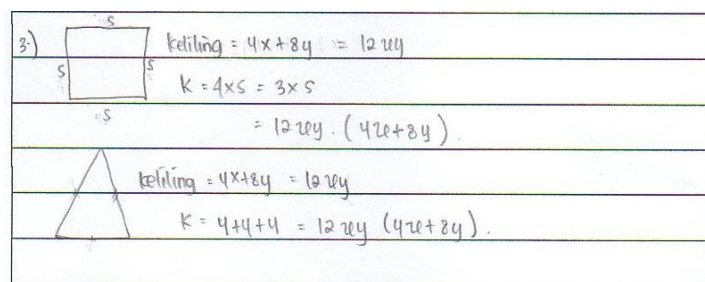 3.) s
keliling = 4x+8y = 12xy
s s
K = 4×s = 3×s
s
= 12xy. (4x+8y).
keliling = 4x+8y = 12xy
K = 4+4+4 = 12xy (4x+8y).